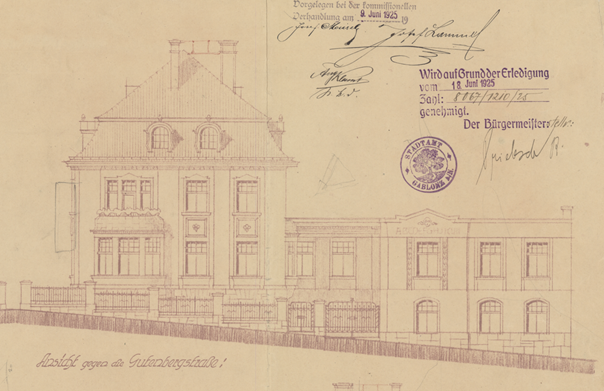 Vorgelegen bei der kommissionellen
Verhandlung am 9. Juni 1925 19
Josef
Wird auf Grund der Erledigung
vom 18. Juni 1925
Zahl: 8067/1210/25
genehmigt.
Der Bürgermeisterstellv.:
STADTAMT
GABLONZ A/N.
Ansicht gegen die Gutenbergstraße: